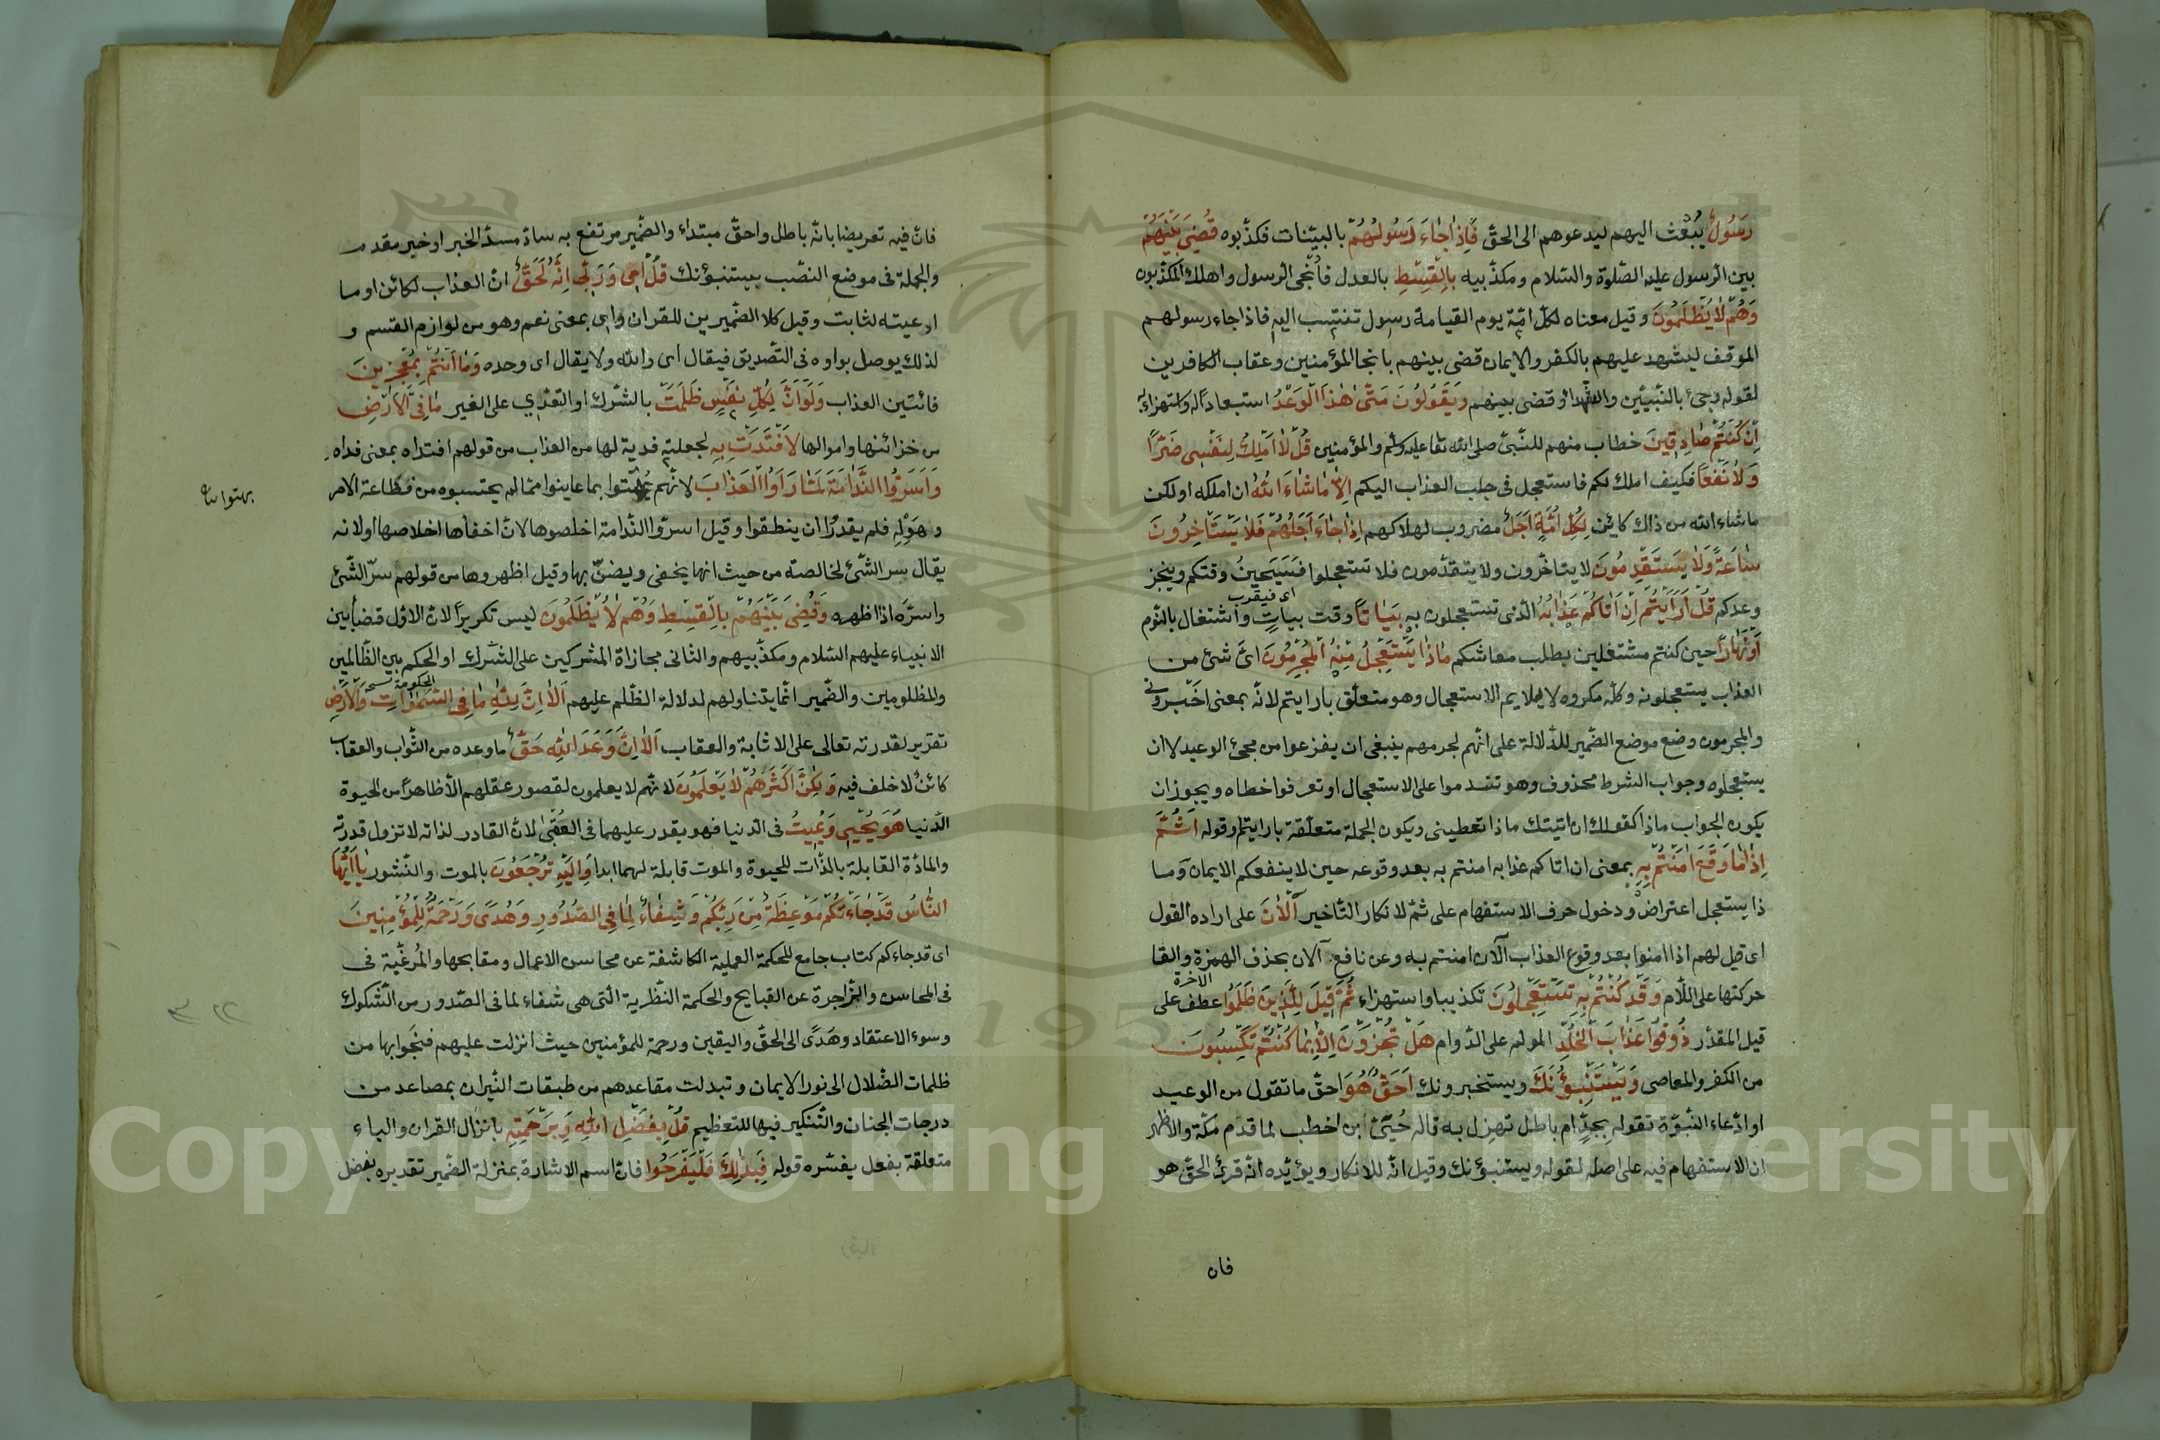 رَسُولٌ يُبْعَث اليهم ليدعوهم الى الحقّ فَاِذَا جَاءَ رَسُولُهُمْ بالبيّنات فكذّبوه قُضِىَ بَيْنَهُمْ
بين الرسول عليه الصّلوة والسّلام ومكذّبيه بِالْقِسْطِ بالعدل فأنجى الرسول واهلك المكذّبون
وَهُمْ لاَ يُظْلَمُونَ وقيل معناه لكلّ امّة يوم القيامة رسول تنتسب اليه فاذا جاء رسولهم
الموقف ليشهد عليهم بالكفر والايمان قضى بينهم بانجا المؤمنين وعقاب الكافرين
لقوله وجئ بالنّبيّين والشّهداء وقضى بينهم وَيَقُولُونَ مَتٰى هٰذَا الْوَعْدُ استبعاداً له واستهزاء به
اِنْ كُنْتُمْ صَادِقِينَ خطاب منهم للنّبىّ صلى الله تعا عليه وسلم والمؤمنين قُلْ لاَ اَمْلِكُ لِنَفْسِى ضَرًّا
وَلاَ نَفْعًا فكيف املك لكم فاستعجل فى جلب العذاب اليكم اِلاَّ مَا شَاءَ اللهُ ان املكه او لكن
ما شاء الله من ذلك كائن لِكُلِّ اُمَّةٍ اَجَلٌ مضروب لهلاكهم اِذَا جَاءَ اَجَلُهُمْ فَلاَ يَسْتَأْخِرُونَ
سَاعَةً وَلاَ يَسْتَقْدِمُونَ لا يتأخّرون ولا يتقدّمون فلا تستعجلوا فسيحين وقتكم وينجز
اى فيقرب
وعدكم قُلْ اَرَاَيْتُمْ اِنْ اَتَاكُمْ عَذَابُهُ الذى تستعجلون به بَيَاتًا وقت بيات واشتغال بالنّوم
اَوْ نَهَاراً حين كنتم مشتغلين بطلب معاشكم مَاذَا يَسْتَعْجِلُ مِنْهُ الْمُجْرِمُونَ اىّ شئ من
العذاب يستعجلونه وكلّه مكروه لا يلايم الاستعجال وهو متعلّق بارايتم لانّه بمعنى اخبرونى
والمجرمون وضع موضع الضّمير للدّلالة على انّهم لجرمهم ينبغى ان يفزعوا من مجئ الوعيد لا ان
يستعجلوه وجواب الشرط محذوف وهو تندموا على الاستعجال او تعرفوا خطاه ويجوز ان
يكون الجواب ماذا كقولك ان اتيتك ماذا تعطينى ويكون الجملة متعلّقة بارايتم او قوله اَثُمَّ
اِذَا مَا وَقَعَ اٰمَنْتُمْ بِهِ بمعنى ان اتاكم عذابه امنتم به بعد وقوعه حين لا ينفعكم الايمان وما
ذا يستعجل اعتراض ودخول حرف الاستفهام على ثمّ لانكار التّأخير آلاٰنَ على اراده القول
اى قيل لهم اذا امنوا بعد وقوع العذاب آلان امنتم به وعن نافع آلان بحذف الهمزة والقا
حركتها على اللّام وَقَدْ كُنْتُمْ بِهِ تَسْتَعْجِلُونَ تكذيبا واستهزاء ثُمَّ قِيلَ لِلَّذِينَ ظَلَمُوا عطف على
الاخرة
قيل المقدّر ذُوقُوا عَذَابَ الْخُلْدِ المولم على الدّوام هَلْ تُجْزَوْنَ اِلاَّ بِمَا كُنْتُمْ تَكْسِبُونَ
من الكفر والمعاصى وَيَسْتَنْبِؤُنَكَ ويستخبرونك اَحَقٌّ هُوَ احقّ ما تقول من الوعيد
او ادّعاء النّبوّة تقوله بجدٍّ ام باطل تهزل به قاله حُيَىّ ابن اخطب لما قدم مكّة والاظهر
ان الاستفهام فيه على اصله لقوله ويستنبؤنك وقيل انّه للانكار ويؤيّده انّه قرئ الحقّ هو
فان
فانّ فيه تعريضا بانّه باطل واحقّ مبتداء والضّمير مرتفع به سادّ مسدّ الخبر او خبر مقدم
والجملة فى موضع النصّب بيستنبؤنك قُلْ اِى وَرَبِّى اِنَّهُ لَحَقٌّ انّ العذاب لكائن او ما
ادعيته لثابت وقيل كلا الضّميرين للقران واى بمعنى نعم وهو من لوازم القسم و
لذلك يوصل بواوه فى التّصديق فيقال اى والله ولا يقال اى وحده وَمَا اَنْتُمْ بِمُعْجِزِينَ
فائتين العذاب وَلَوْ اَنَّ لِكُلِّ نَفْسٍ ظَلَمَتْ بالشّرك او التعدّى على الغير مَا فِى الْاَرْضِ
من خزائنها واموالها لاَفْتَدَتْ بِهِ لجعلته فدية لها من العذاب من قولهم افتداه بمعنى فداه
وَاَسَرُّوا النَّدَامَةَ لَمَّا رَاَوُا الْعَذَابَ لانّهم بهتوا بما عاينوا ممّا لم يحتسبوه من فظاعة الامر
بهتوا
وهوله فلم يقدرا ان ينطقوا وقيل اسرّوا النّدامة اخلصوها لانّ اخفاها اخلاصها او لانه
يقال سر الشّئ لخالصته من حيث انها يخفى ويضنّ بها وقيل اظهروها من قولهم سرّ الشّئ
واسرّه اذا اظهره وَقُضِىَ بَيْنَهُمْ بِالْقِسْطِ وَهُمْ لاَ يُظْلَمُونَ ليس تكريرًا لانّ الاوّل قضا بين
الانبياء عليهم السّلام ومكذّبيهم والثانى مجازاة المشركين على الشّرك او الحكم بين الظّالمين
الحكومة نسخه
والمظلومين والضّمير انّما يتناولهم لدلالة الظّلم عليهم اَلاَ اِنَّ لِلّٰهِ مَا فِى السَّمٰوَاتِ وَالْاَرْضِ
تقرير لقدرته تعالى على الاثابة والعقاب اَلاَ اِنَّ وَعْدَ اللهِ حَقٌّ ما وعده من الثّواب والعقاب
كائن لا خلف فيه وَلٰكِنَّ اَكْثَرَهُمْ لاَ يَعْلَمُونَ لانّهم لا يعلمون لقصور عقلهم الاّ ظاهراً من الحيوة
الدّنيا هُوَ يُحْيِى وَيُمِيتُ فى الدّنيا فهو يقدر عليهما فى العقبىٰ لانّ القادر لذاته لا تزول قدرته
والمادّة القابلة بالذّات للحيوة والموت قابلة لهما ابدا وَاِلَيْهِ تُرْجَعُونَ بالموت والنّشور يَا اَيُّهَا
النَّاسُ قَدْ جَاءَتْكُمْ مَوْعِظَةٌ مِنْ رَبِّكُمْ وَشِفَاءٌ لِمَا فِى الصُّدُورِ وَهُدًى وَرَحْمَةٌ لِلْمُؤْمِنِينَ
اى قد جاءكم كتاب جامع للحكمة العملية الكاشفة عن محاسن الاعمال ومقابحها والمرغّبة فى
فى المحاسن والزّاجرة عن القبايح والحكمة النّظرية الّتى هى شفاء لما فى الصّدور من الشّكوك
وسوء الاعتقاد وهدًى الى الحقّ واليقين ورحمة للمؤمنين حيث انزلت عليهم فنجوا بها من
ظلمات الضّلال الى نور الايمان وتبدلت مقاعدهم من طبقات النّيران بمصاعد من
درجات الجنان والتّنكير فيها للتعظيم قُلْ بِفَضْلِ اللهِ وَبِرَحْمَتِهِ بانزال القران والباء
متعلقة بفعل يفسّره قوله فَبِذٰلِكَ فَلْيَفْرَحُوا فانّ اسم الاشارة بمنزلة الضّمير تقديره بفضل
1957
Copyright © King Saud University